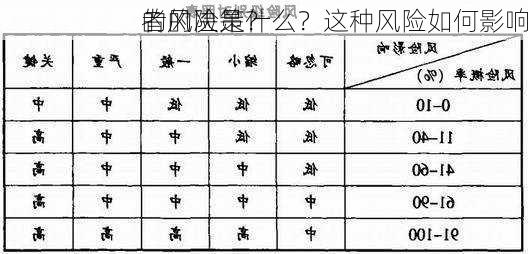 的风险是什么？这种风险如何影响
者的决策？
风险影响
风险概率（%） 可忽略 微小 一般 严重 关键
0-10 低 低 低 中 中
11-40 低 低 中 中 高
41-60 低 中 中 中 高
61-90 中 中 中 中 高
91-100 中 高 高 高 高